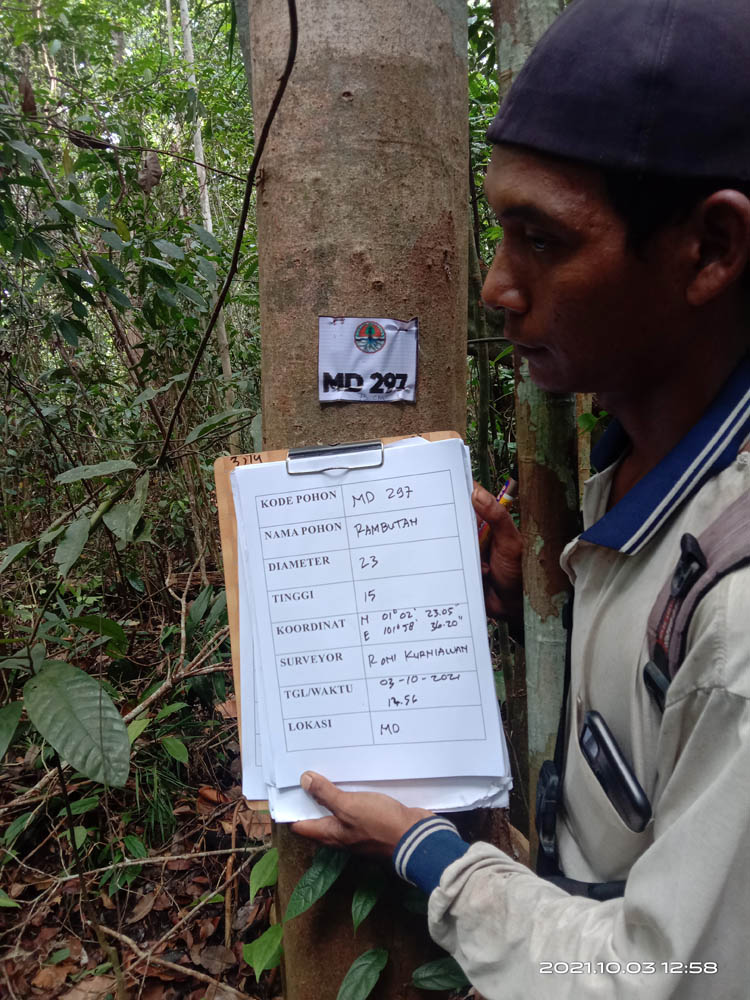 MD 297
3374
KODE POHON MD 297
NAMA POHON RAMBUTAN
DIAMETER 23
TINGGI 15
KOORDINAT N 01°02' 23.05"
E 101°58' 36.20"
SURVEYOR RONI KURNIAWAN
TGL/WAKTU 03-10-2021
12.56
LOKASI MD
2021.10.03 12:58